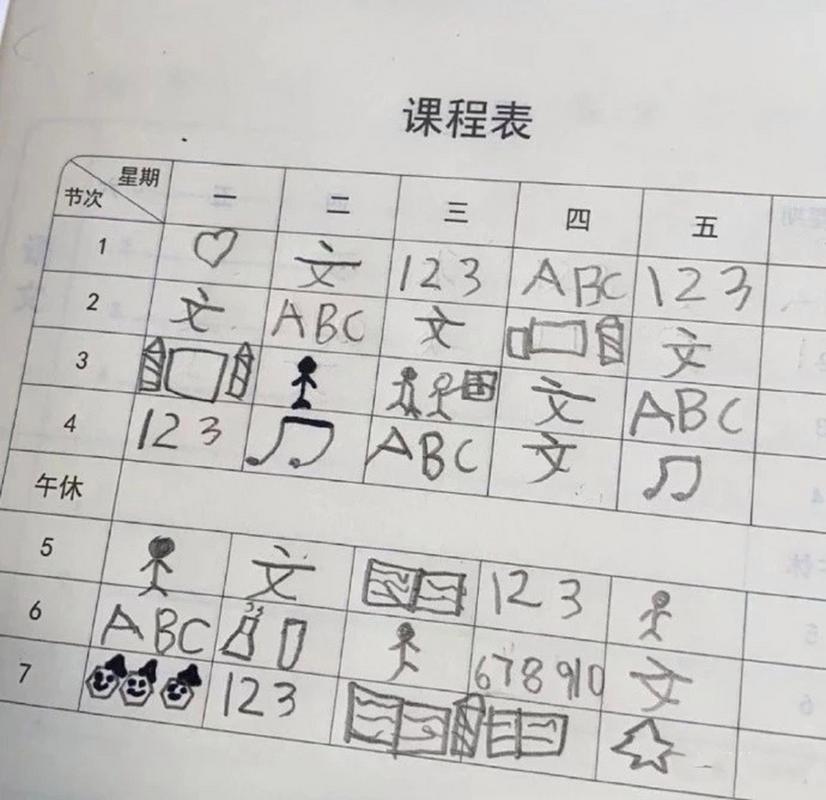 课程表
星期 一 二 三 四 五
节次
1 文 123 ABC 123
2 文 ABC 文 文
3 文 ABC
4 123 ABC 文
午休
5 文 123
6 ABC 678910 文
7 123